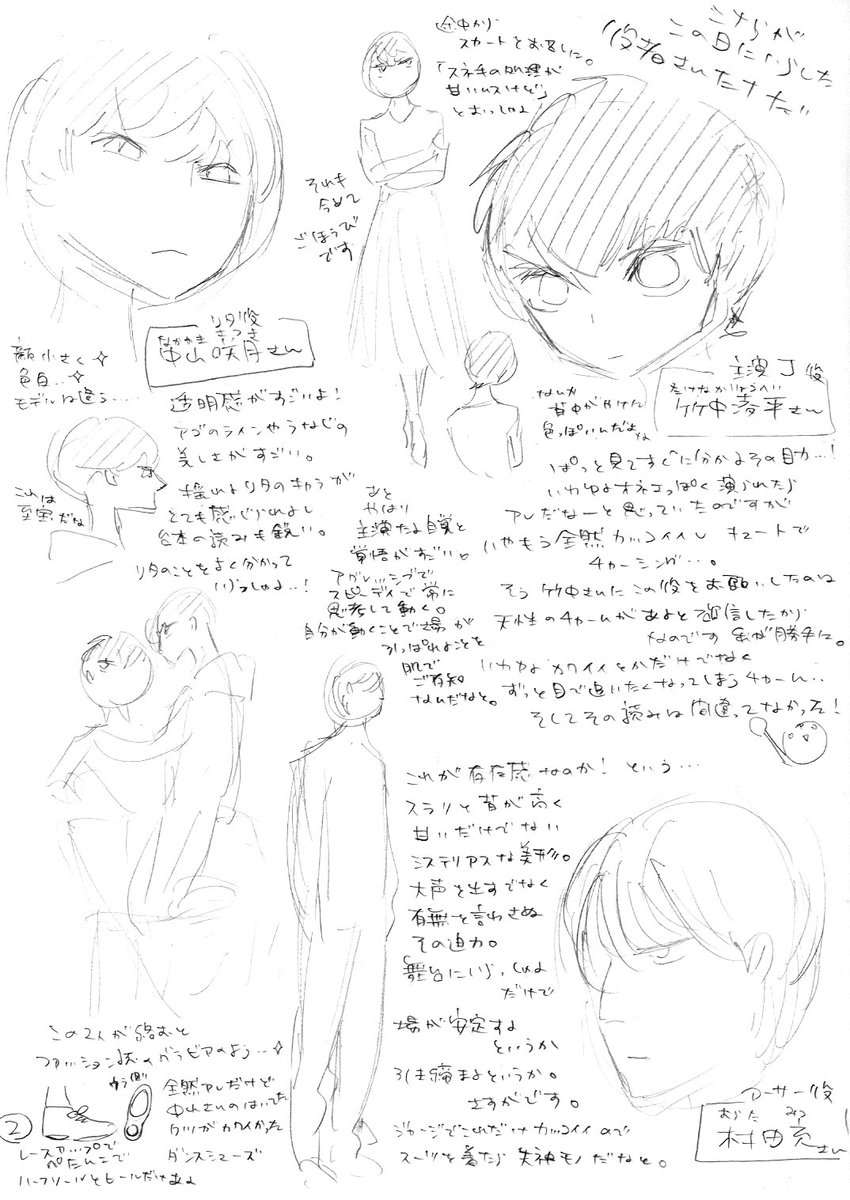 こちらが
この日にいらした
役者さんたちだ!!
途中から
スカートをお召しに。
「スネ毛の処理が
甘いんスけど」
とおっしゃる
それも
含めて
ごほうび
です
リタ役
なかやま さつき
中山咲月さん
顔小さく
色白…
モデルは違う……
透明感がすごいよ!
アゴのラインやうなじの
美しさがすごい。
これは
至宝だな
様いよリタのキャラが
とても感じられるよし
台本の読みも鋭い。
リタのことをよく分かって
いらっしゃる…!
主演 J役
たけなかりょうへい
竹中凌平さん
なんか
背中がやけに
色っぽいんだよね
ぱっと見てすぐに分かるその目力…!
いわゆるオネエっぽく演られたら
アレだなーと思っていたのですが
いやもう全然カッコイイし キュートで
チャーミング…。
そう 竹中さんにこの役をお願いしたのは
天性のチャームがあるよと確信したから
なのです 私が勝手に。
いわゆるカワイイとかだけでなく
ずっと目で追いたくなってしまうチャーム…
そしてその読みは間違ってなかった!
あと
やはり
主演たる自覚と
覚悟がすごい。
アグレッシブで
スピーディで常に
思考して動く。
自分が動くことで場が
引っぱれることを
肌で
ご存知
なんだなと。
これが存在感なのか! という…
スラリと背が高く
甘いだけでない
ミステリアスな美形。
大声を出すでなく
有無を言わさぬ
その迫力。
舞台にいらっしゃる
だけで
場が安定する
というか
引き締まるというか。
さすがです。
ジャージでこれだけカッコイイので
スーツを着たら 失神モノだなと。
アーサー役
むらた みつ
村田充さん
この2人が絡むと
ファッション誌のグラビアのよう…
うら(側)
全然アレだけど
中山さんのはいてた
クツがカワイかった
ダンスシューズ
レースアップで
ぺたんこで
ハーフソールとヒールだけあるよ
2